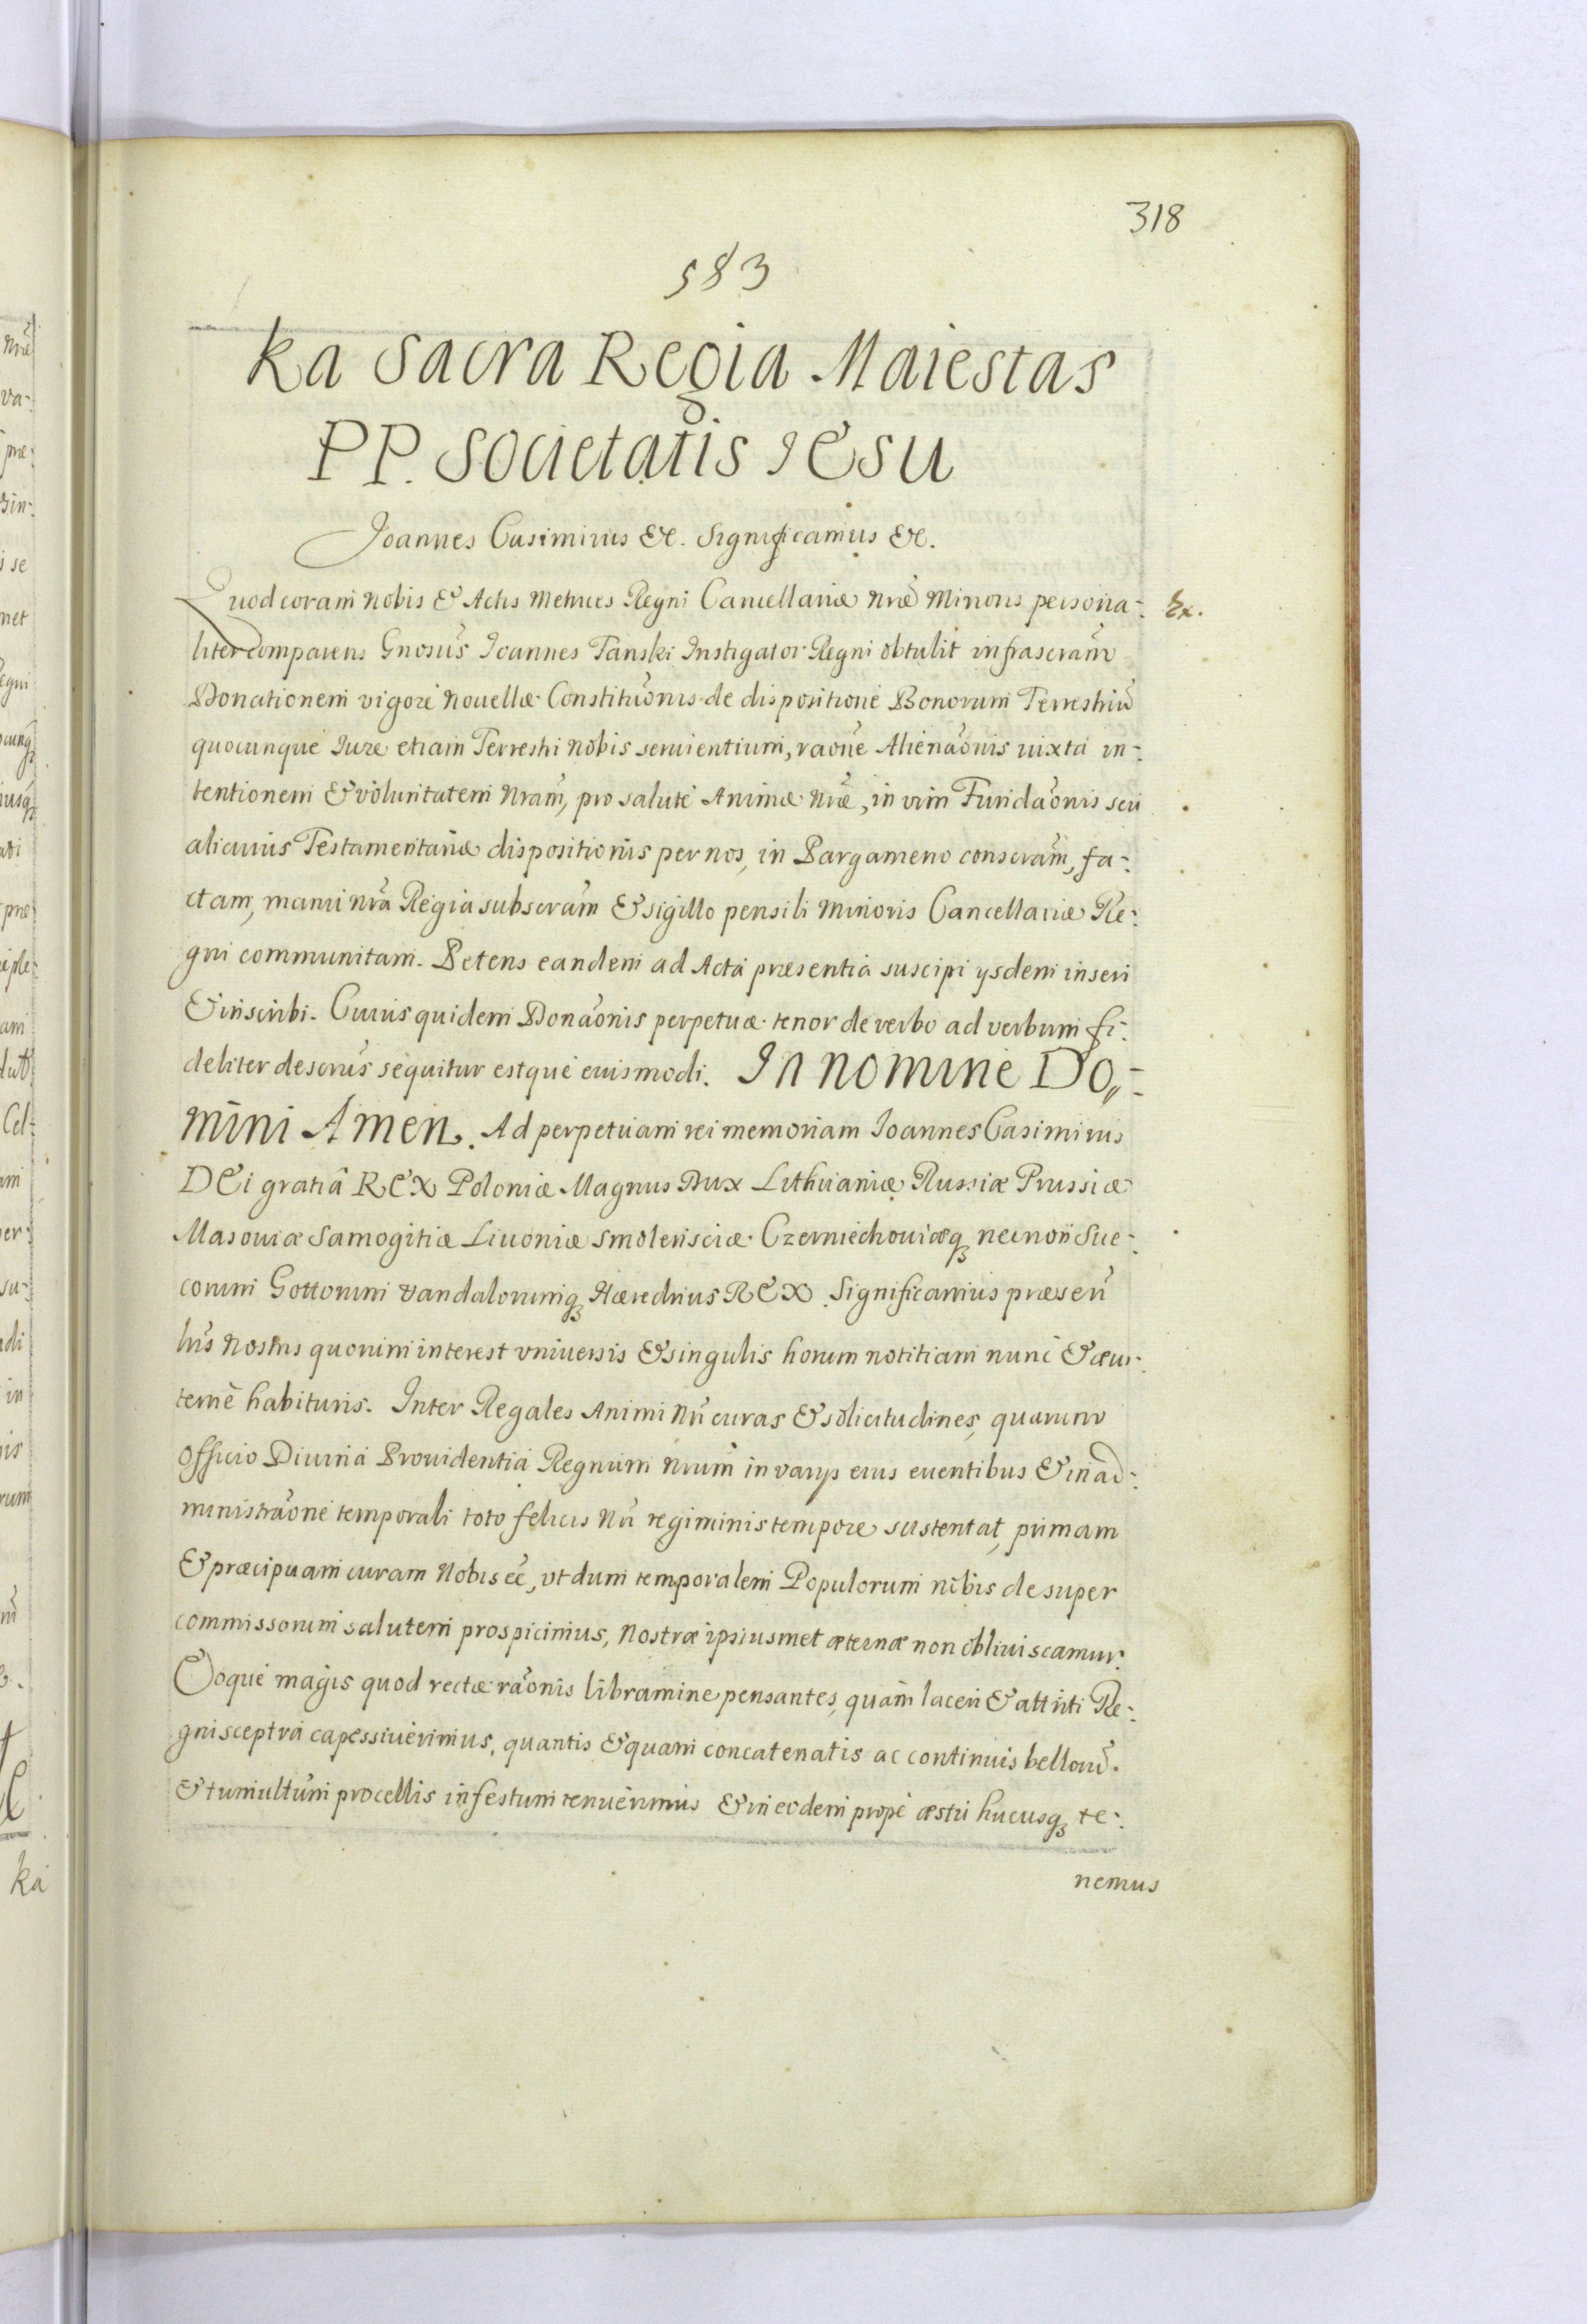 318
583
Ka Sacra Regia Maiestas
PP. Societatis IESU
Joannes Casimirus &c. Significamus &c.
Quod coram nobis & Actis Metrices Regni Cancellariæ nrae Minoris persona-: Ex.
liter comparens Gnosus Joannes Tanski Instigator Regni obtulit infrascram
Donationem vigore nouellæ Constituonis de dispositione Bonorum Terrestriu
quocunque Iure etiam Terrestri nobis seruientium, raone Alienaonis iuxta in-:
tentionem & voluntatem nram, pro salute Animæ nræ, in vim Fundaonis seu
alicuius Testamentariæ dispositionis per nos, in Pargameno conscram, fa-:
ctam, manu nra Regia subscram & sigillo pensili Minoris Cancellariæ Re-:
gni communitam. Petens eandem ad Acta præsentia suscipi ysdem inseri
& inscribi. Cuius quidem Donaonis perpetuæ tenor de verbo ad verbum fi-:
deliter descrus sequitur estque eiusmodi. In nomine Do,,-:
mini Amen. Ad perpetuam rei memoriam Joannes Casimirus
DEi gratiâ REX Poloniæ Magnus Dux Lithuaniæ Russiæ Prussiæ
Masouiæ Samogitiæ Liuoniæ Smolensciæ Czerniechouiæq necnon Sue-:
corum Gottorum Vandalorumq Hæredrius REX. Significamus præsen
bus nostris quorum interest vniuersis & singulis horum notitiam nunc & æui-:
terne habituris. Inter Regales Animi nri curas & solicitudines, quarum
officio Diuina Prouidentia Regnum nrum in varys eius euentibus & in ad-:
ministraone temporali toto felicis nri regiminis tempore sustentat, primam
& præcipuam curam nobis ee, vt dum temporalem Populorum nobis desuper
commissorum salutem prospicimus, nostræ ipsiusmet æternæ non obliuiscamur.
Eoque magis quod rectæ raonis libramine pensantes, quam laceri & attriti Re-:
gni sceptra capessiuerimus, quantis & quam concatenatis ac continuis belloru
& tumultum procellis infestum tenuerimus & in eodem prope æstu hucusq te-:
nemus